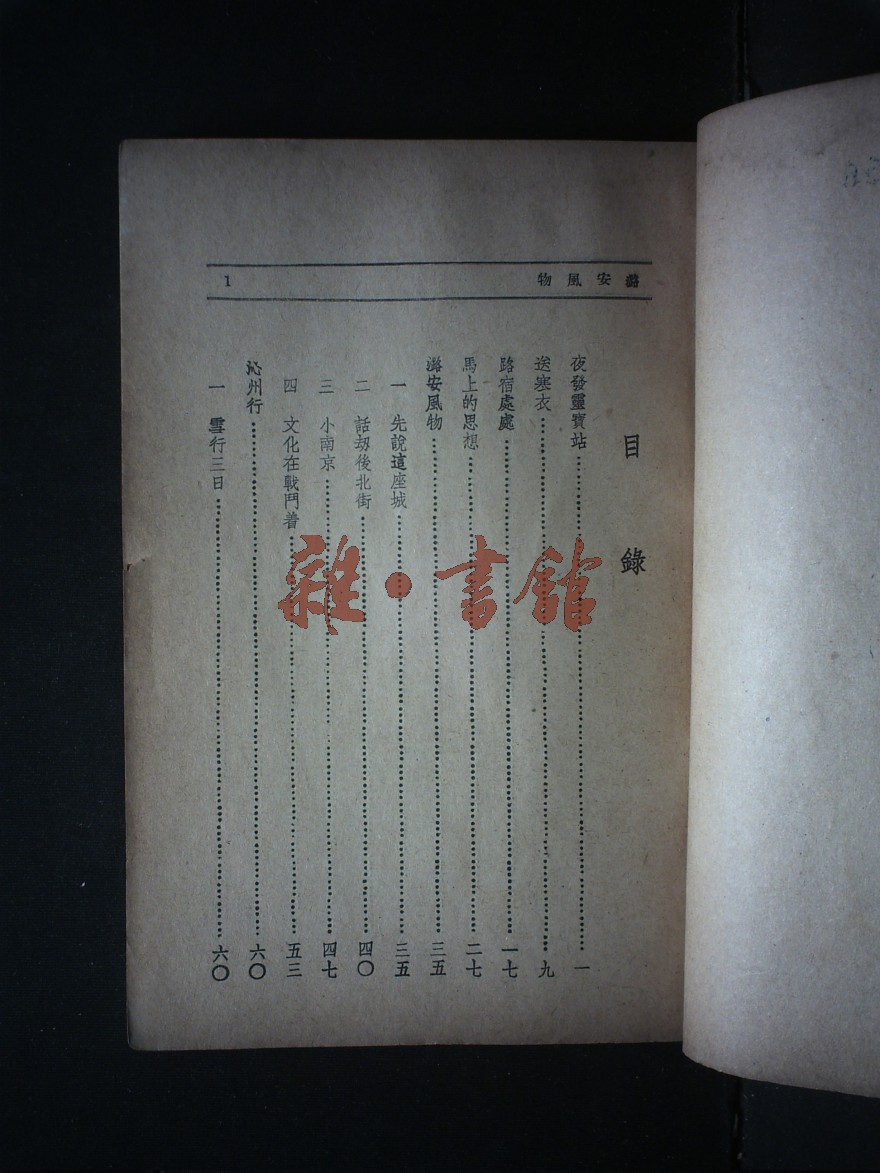 潞安風物
1
目錄
夜發靈寶站……一
送寒衣……九
路宿處處……一七
馬上的思想……二七
潞安風物……三五
一 先說這座城……三五
二 話劫後北街……四〇
三 小南京……四七
四 文化在戰鬥着……五三
沁州行……六〇
一 雪行三日……六〇
雜·書館